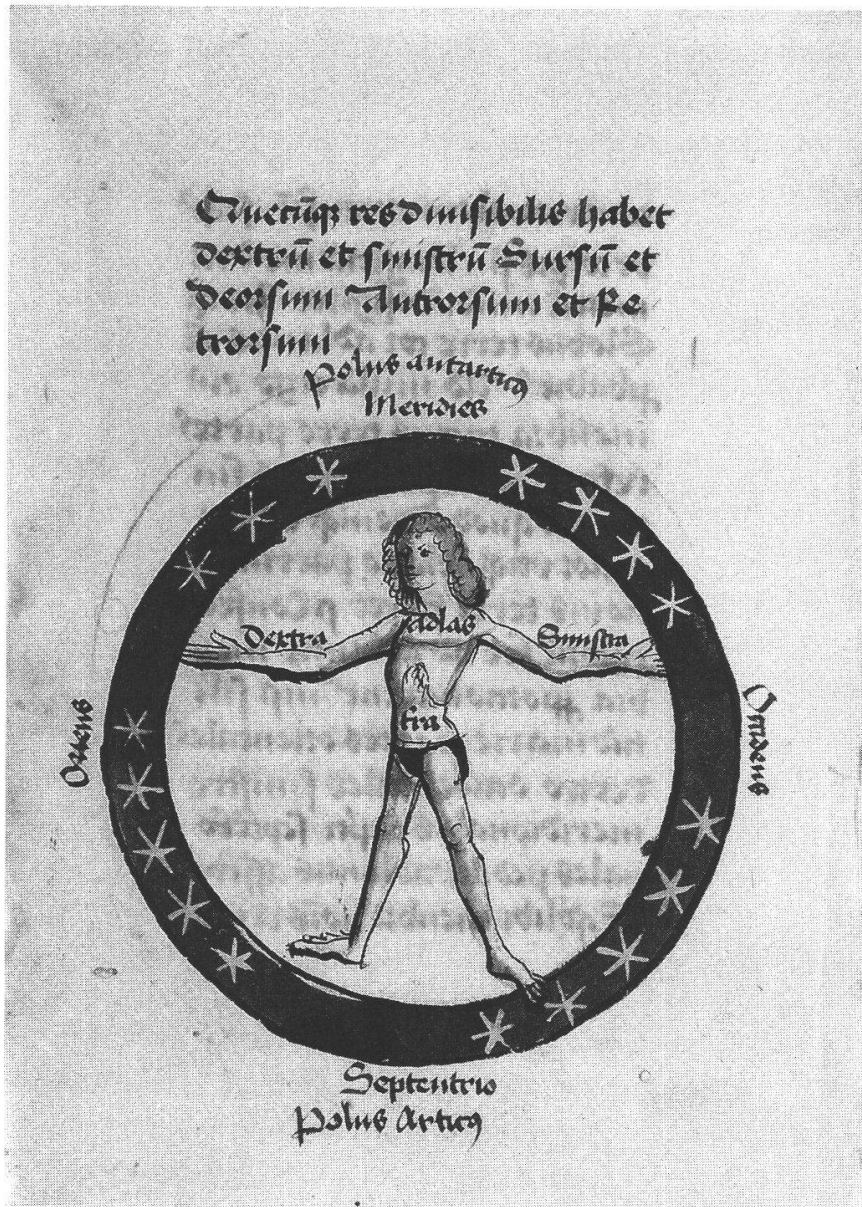 Quecūqꝫ res diuisibilis habet
dextrū et sinistrū Sursū et
deorsum Antrorsum et Re
trorsum
Polus antarticꝰ
Meridies
Adlas
Dextra
Sinistra
Oriens
Occidens
tra
Septentrio
Polus Articꝰ